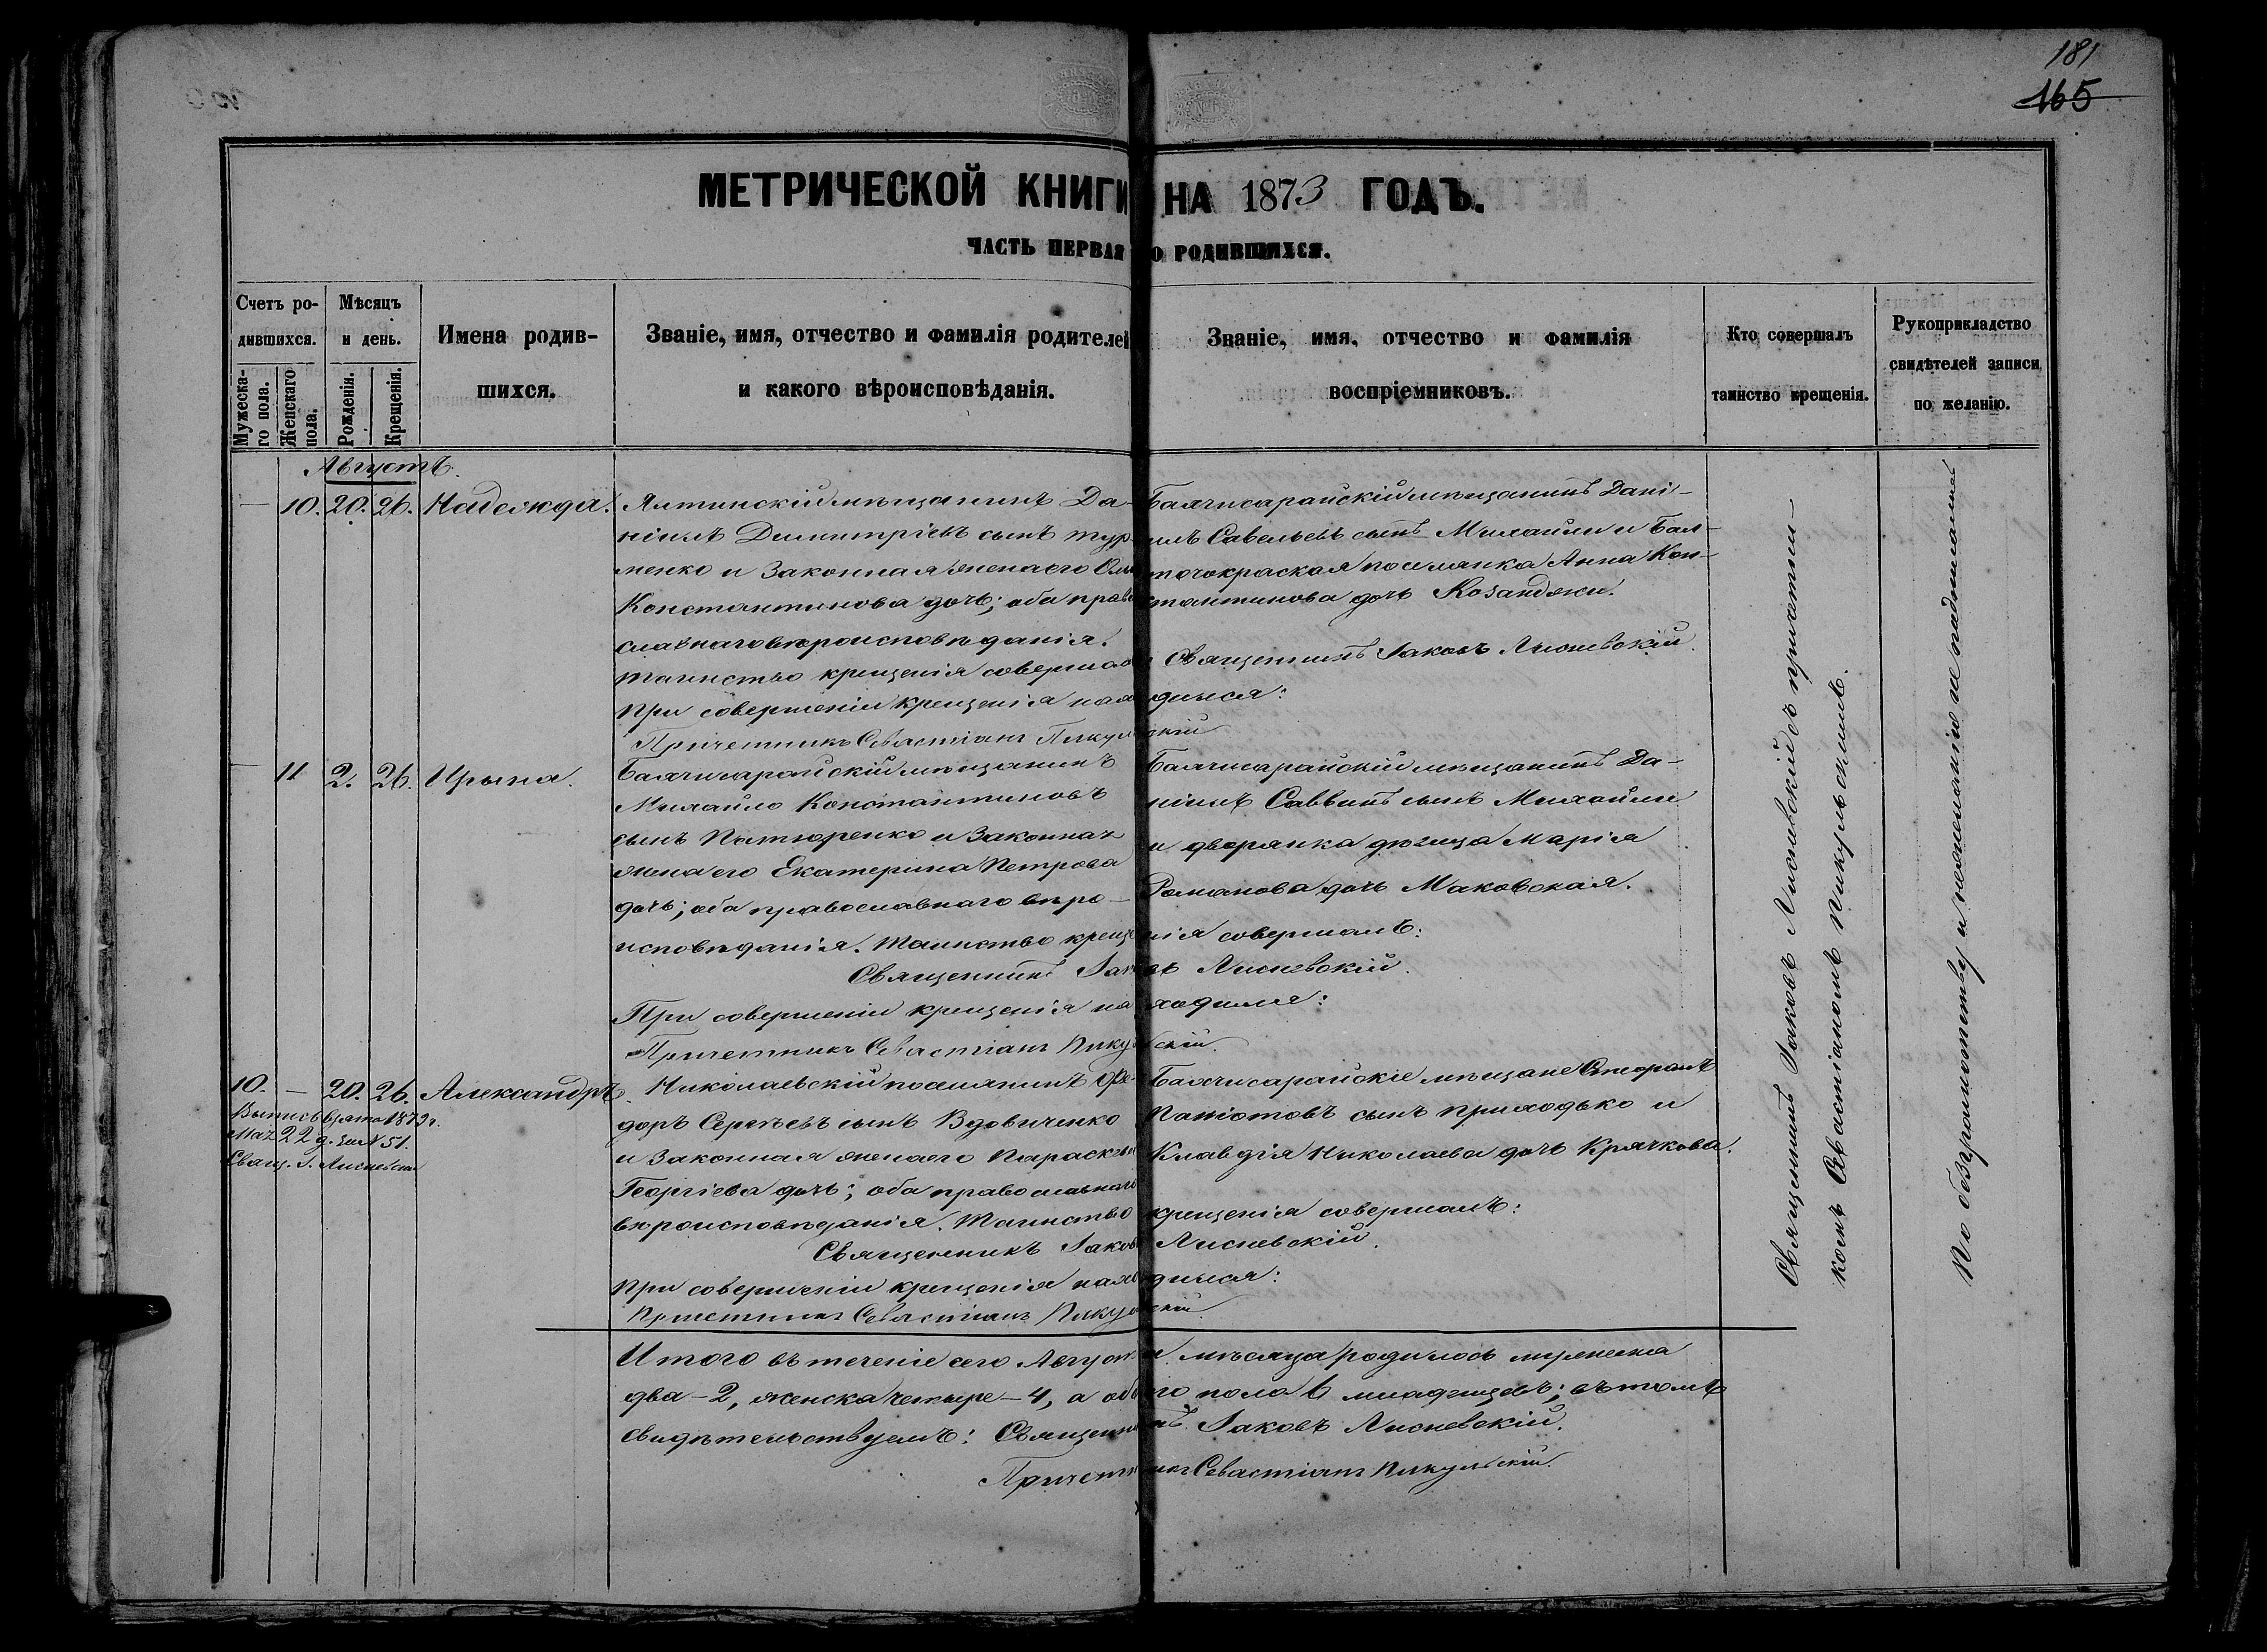 181
165
МЕТРИЧЕСКОЙ КНИГИ НА 1873 ГОДЪ.
ЧАСТЬ ПЕРВАЯ О РОДИВШИХСЯ.
Счетъ ро-
дившихся.
Мужеска-
го пола.
Женскаго
пола.
Мѣсяцъ
и день.
Рожденія.
Крещенія.
Имена родив-
шихся.
Званіе, имя, отчество и фамилія родителей
и какого вѣроисповѣданія.
Званіе, имя, отчество и фамилія
воспріемниковъ.
Кто совершалъ
таинство крещенія.
Рукоприкладство
свидѣтелей записи
по желанію.
Августъ.
— 10. 20. 26. Надежда.
Ялтинскій мѣщанинъ Да-
ніилъ Димитріевъ сынъ Тур
менко и законная жена его
Константинова дочь; оба право
славнаго вѣроисповѣданія.
Бахчисарайскій мѣщанинъ Дані-
илъ Савельевъ сынъ Михайли и
поселянка Анна Кон-
стантинова дочь
Таинство крещенія совершалъ Священникъ Іаковъ Лисневскій.
При совершеніи крещенія находился:
Причетникъ Севастіанъ Пикульскій
— 11 2. 26. Ирына.
Бахчисарайскій мѣщанинъ
Михайло Константиновъ
сынъ и законная
жена его Екатерина Петрова
дочь; оба православнаго вѣро-
Бахчисарайскій мѣщанинъ Да-
ніилъ Саввинъ сынъ Михайли
и дворянка дѣвица Марія
Романова дочь Маковская.
исповѣданія. Таинство крещенія совершалъ:
Священникъ Іаковъ Лисневскій.
При совершеніи крещенія находился:
Причетникъ Севастіанъ Пикульскій.
10. — 20. 26. Александръ.
Выпись взята 1879 г.
Мая 22 д. за № 51.
Свящ. І. Лисневскій
Николаевскій поселянинъ Фео-
доръ Сергѣевъ сынъ Вдовиченко
и законная жена его Параскева
Георгіева дочь; оба православнаго
Бахчисарайскіе мѣщане
сынъ Приходько и
Клавдія Николаева дочь Крячкова.
вѣроисповѣданія. Таинство крещенія совершалъ:
Священникъ Іаковъ Лисневскій.
При совершеніи крещенія находился:
Причетникъ Севастіанъ Пикульскій.
Итого въ теченіе сего Августа мѣсяца родилось мужеска
два – 2, женска четыре – 4, а обоего пола 6 младенцевъ; въ томъ
свидѣтельствуемъ: Священникъ Іаковъ Лисневскій.
Причетникъ Севастіанъ Пикульскій.
Священникъ Іаковъ Лисневскій съ причетни-
комъ Севастіаномъ Пикульскимъ.
По безграмотству и нежеланію не подписались